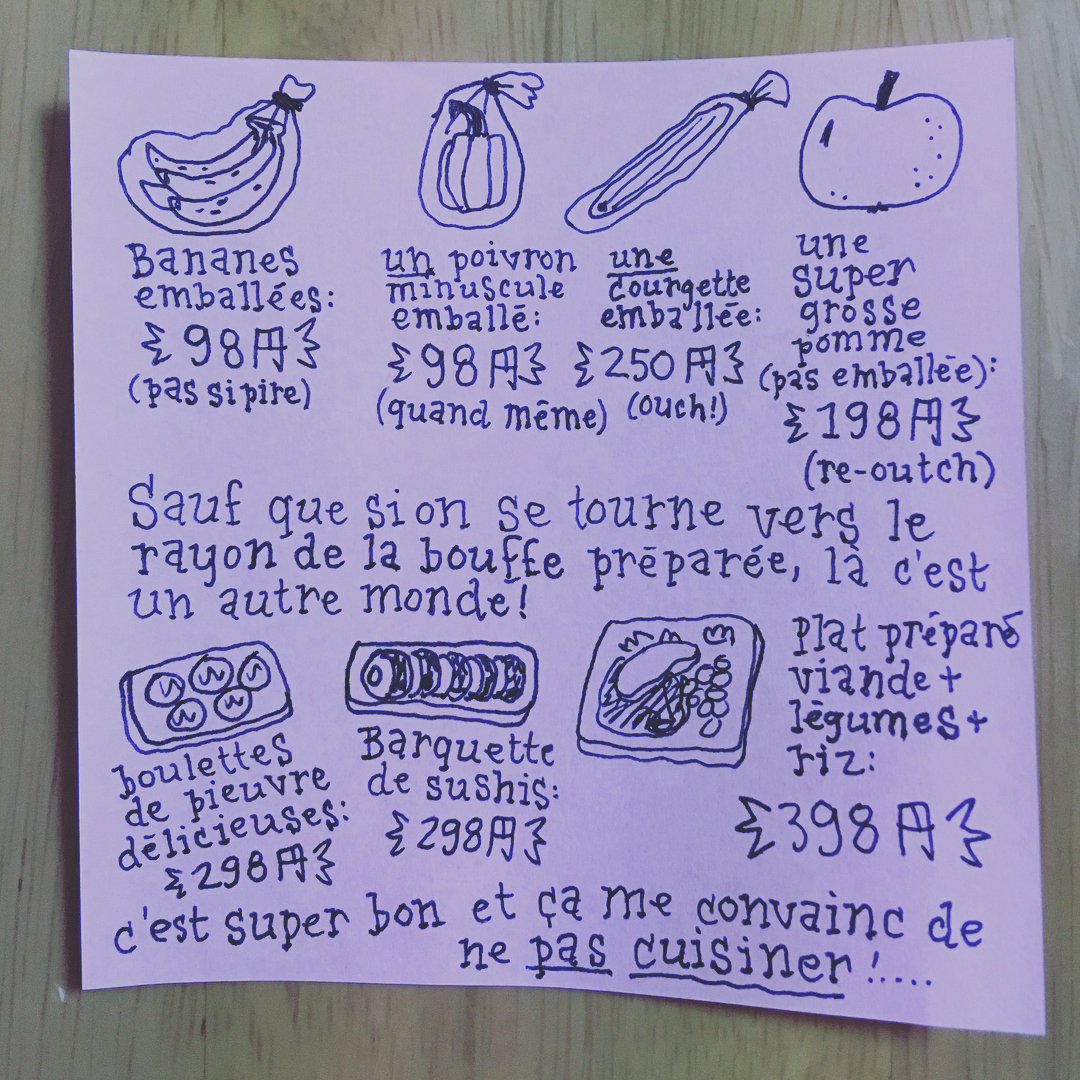 Bananes
emballées:
98円
(pas si pire)
un poivron
minuscule
emballé:
98円
(quand même)
une
courgette
emballée:
250円
(ouch!)
une
super
grosse
pomme
(pas emballée):
198円
(re-outch)
Sauf que si on se tourne vers le
rayon de la bouffe préparée, là c'est
un autre monde!
boulettes
de pieuvre
délicieuses:
298円
Barquette
de sushis:
298円
Plat préparé
viande+
légumes+
riz:
398円
c'est super bon et ça me convainc de
ne pas cuisiner!....